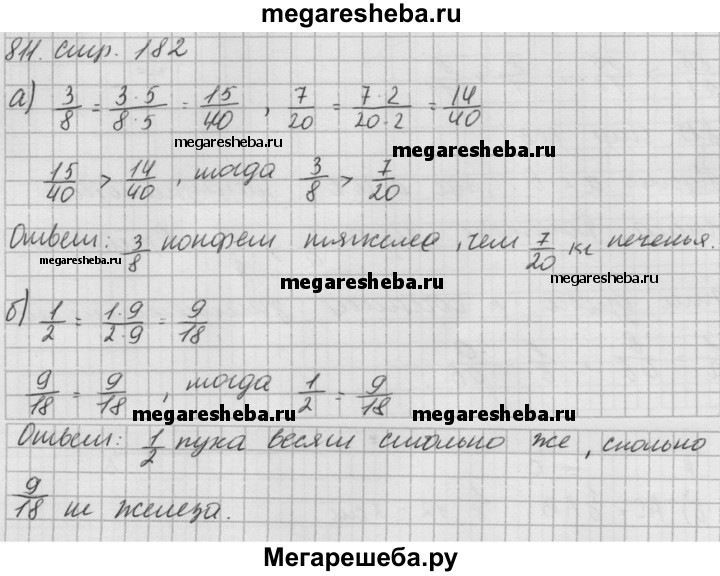 megaresheba.ru
811. стр. 182
а) 3/8 = 3·5/8·5 = 15/40 , 7/20 = 7·2/20·2 = 14/40
megaresheba.ru megaresheba.ru
15/40 > 14/40 , тогда 3/8 > 7/20
Ответ: 3/8 конфет тяжелее , чем 7/20 кг печенья.
megaresheba.ru megaresheba.ru
megaresheba.ru
б) 1/2 = 1·9/2·9 = 9/18
9/18 = 9/18 , тогда 1/2 = 9/18
megaresheba.ru megaresheba.ru
Ответ: 1/2 пуха весят столько же , сколько
9/18 кг железа.
Мегарешеба.ру